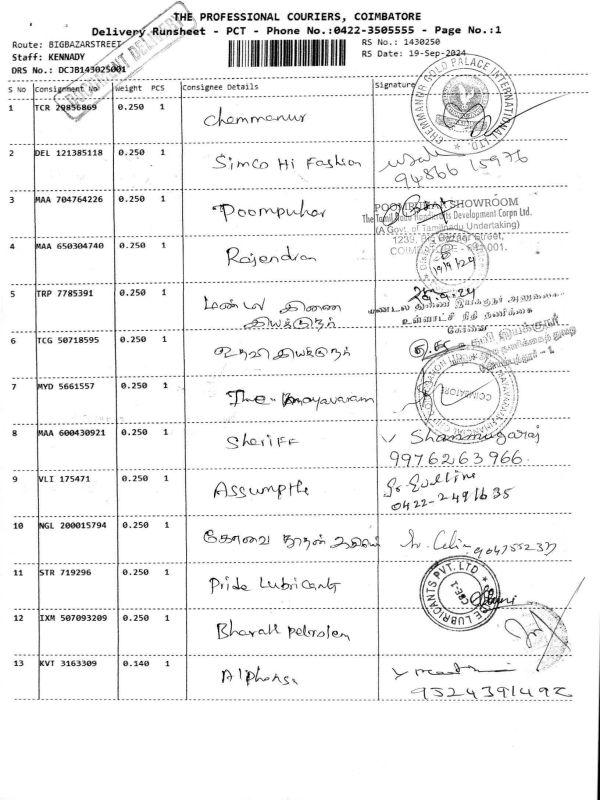 THE PROFESSIONAL COURIERS, COIMBATORE
Delivery Runsheet - PCT - Phone No.:0422-3505555 - Page No.:1
Route: BIGBAZARSTREET
RS No.: 1430250
Staff: KENNADY
RS Date: 19-Sep-2024
DRS No.: DCJB143025001
S No Consignment No Weight PCS Consignee Details Signature
1 TCR 29856869 0.250 1 Chemmanur
CHEMMANUR GOLD PALACE INTERNATIONAL LTD.
2 DEL 121385118 0.250 1 Simco Hi Fashion
94866 15976
3 MAA 704764226 0.250 1 Poompuhar
POOMPUHAR SHOWROOM
The Tamil Nadu Handicrafts Development Corpn Ltd.
(A Govt. of Tamilnadu Undertaking)
1239, Big Bazaar Street,
COIMBATORE - 641 001.
4 MAA 650304740 0.250 1 Rajendran
19/9/24
5 TRP 7785391 0.250 1 மண்டல இணை
இயக்குநர்
உள்ளாட்சி நிதி தணிக்கை
கோவை
6 TCG 50718595 0.250 1 உதவி இயக்குநர்
உதவி இயக்குனர்
7 MYD 5661557 0.250 1 The Mayavaram
COIMBATORE
8 MAA 600430921 0.250 1 Sheriff
Shanmugaraj
99762 63 966
9 VLI 175471 0.250 1 Assumpthe
Sr. Evelline
0422-2491635
10 NGL 200015794 0.250 1 கோவை
Sr. Celin
11 STR 719296 0.250 1 Pride Lubricants
LUBRICANTS PVT. LTD
CBE-1
12 IXM 507093209 0.250 1 Bharath petroleum
13 KVT 3163309 0.140 1 Alphonsa
9524391492